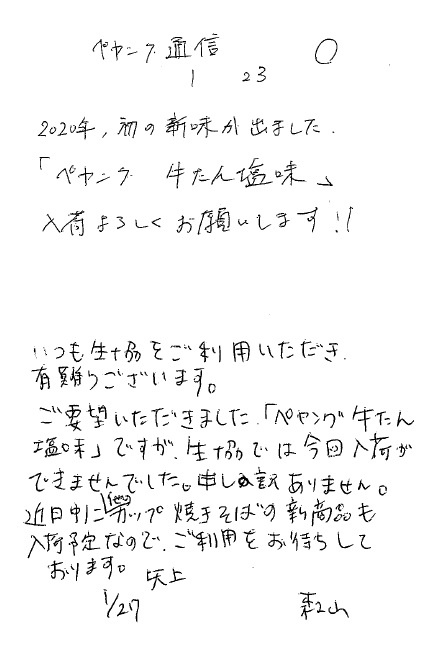 ペヤング通信 〇
1 23
2020年,初の新味が出ました.
「ペヤング 牛たん塩味」
入荷よろしくお願いします!!
いつも生協をご利用いただき、
有難うございます。
ご要望いただきました、「ペヤング牛たん
塩味」ですが、生協では今回入荷が
できませんでした。申し訳ありません。
近日中に他のカップ焼きそばの新商品も
入荷予定なので、ご利用をお待ちして
おります。
1/27 矢上 森山